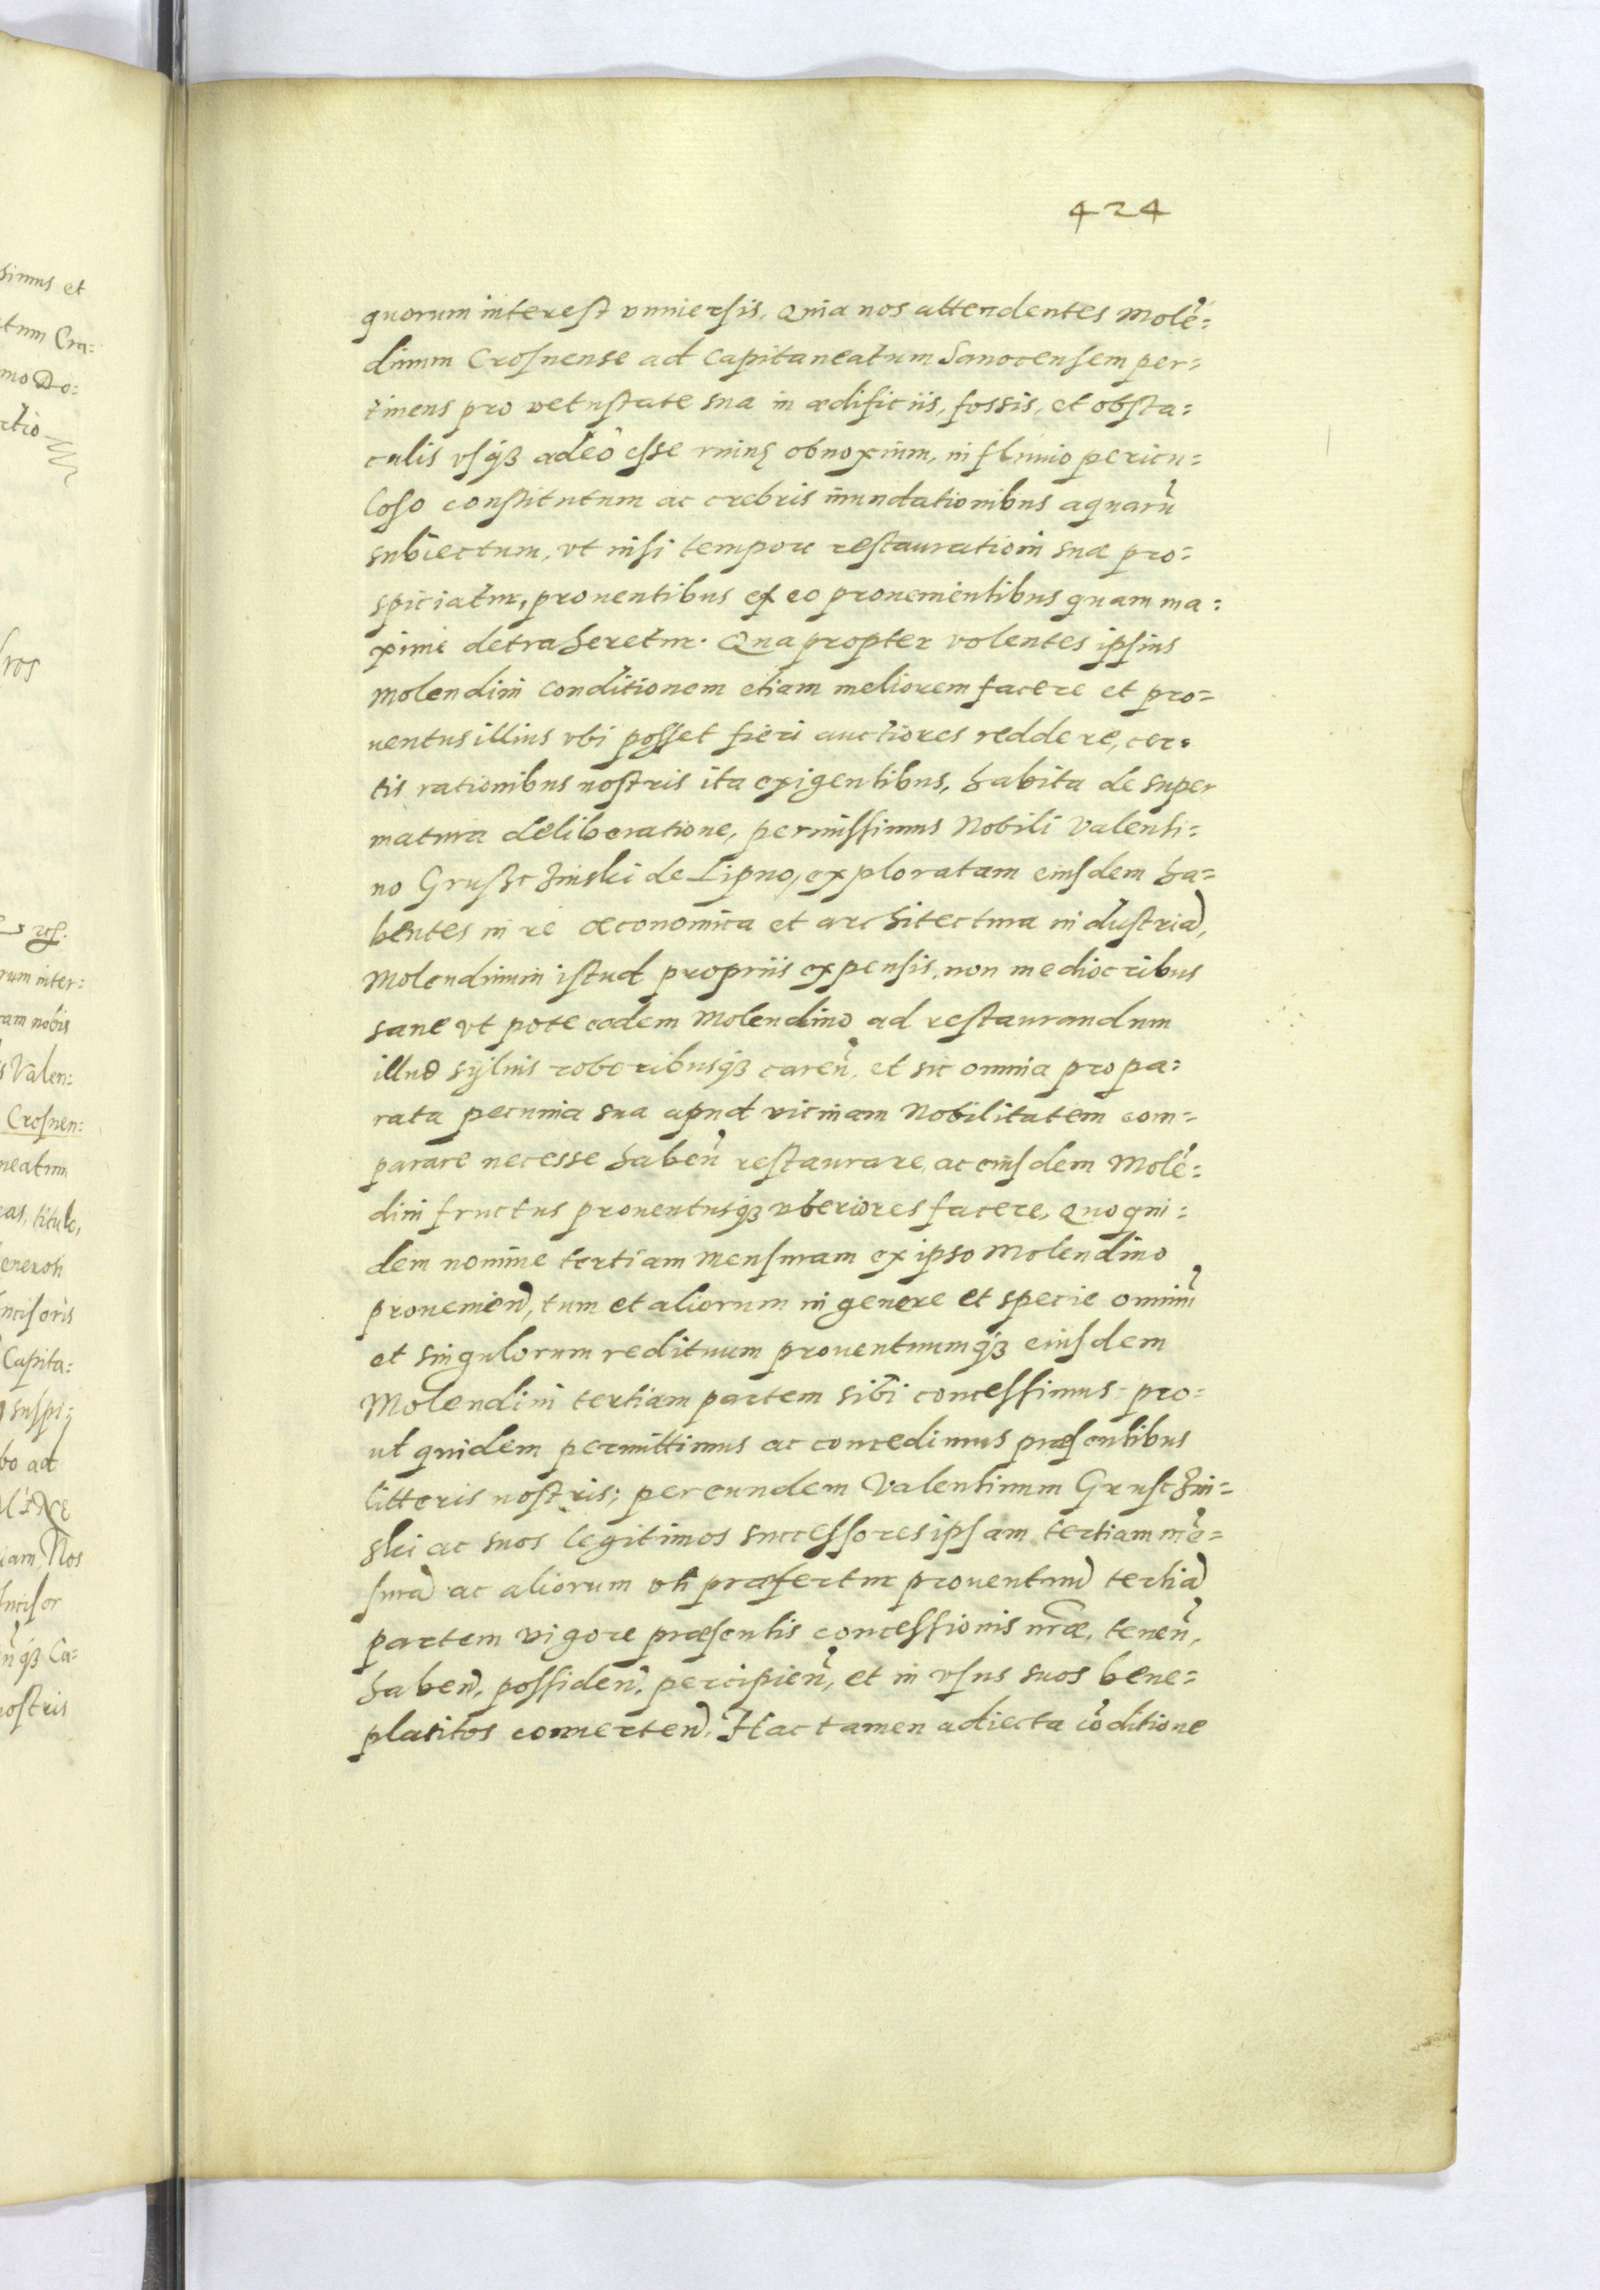 simus et
tum Cra=
mo Do=
rum inter:
ram nobis
s Valen:
Crosnen:
neatum
eas, titulo,
encisoris
Capita=
suspi=
bo ad
iam, Nos
Incisor
ñq́ꝫ Ca=
nostris
424
quorum interest vniuersis, Quia nos attendentes Molẽ=
dinum Crosnense ad Capitaneatum Sanocensem per=
tinens pro vetustate sua in ædificiis, fossis, et obsta=
culis vsq́ꝫ adeò esse ruinę obnoxium, in fluuio pericu=
loso constitutum ac crebris inundationibus aquarũ
subiectum, vt nisi tempore restaurationi suæ pro=
spiciatur, prouentibus ex eo prouenientibus quam ma=
xime detraheretur. Quapropter volentes ipsius
Molendini conditionem etiam meliorem facere et pro=
uentus illius vbi posset fieri auctiores reddere, cer=
tis rationibus nostris ita exigentibus, habita desuper
matura deliberatione, permissimus Nobili Valenti=
no Grusczinski de Lipno, exploratam eiusdem ha=
bentes in re œconomica et architectura industriã,
Molendinum istud propriis expensis, non mediocribus
sane vt pote eodem Molendino ad restaurandum
illud syluis roboribusq́ꝫ careñ, et sic omnia pro pa=
rata pecunia sua apud vicinam Nobilitatem com=
parare necesse habeñ restaurare, ac eiusdem Molẽ=
dini fructus prouentusq́ꝫ vberiores facere, Quo qui=
dem nomine tertiam mensuram ex ipso Molendino
prouenieñ, tum et aliorum in genere et specie omniũ
et singulorum redituum prouentuumq́ꝫ eiusdem
Molendini tertiam partem sibi concessimus = pro=
ut quidem permittimus ac concedimus præsentibus
litteris nostris; per eundem Valentinum Grusczin=
ski ac suos legitimos successores ipsam tertiam mẽ=
surã ac aliorum vti præfertur prouentuũ tertiã
partem vigore præsentis concessionis nr̃æ, teneñ,
habeñ, possideñ, percipieñ, et in vsus suos bene=
placitos conuerteñ, Hac tamen adiecta cõditione